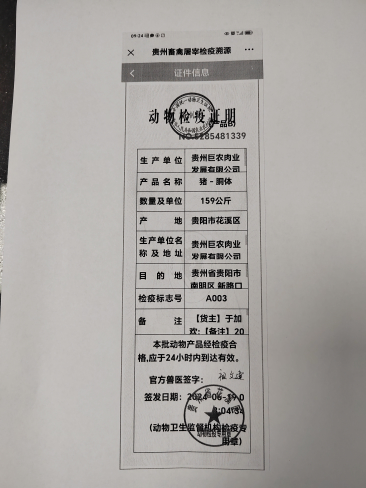 贵州畜禽屠宰检疫溯源
证件信息
动物检疫证明
NO.5285481339
生产单位
贵州巨农肉业
发展有限公司
产品名称
猪-胴体
数量及单位
159公斤
产地
贵阳市花溪区
生产单位名称及地址
贵州巨农肉业
发展有限公司
目的地
贵州省贵阳市
南明区 新路口
检疫标志号
A003
备注
【货主】于加
欢:【备注】20
本批动物产品经检疫合
格,应于24小时内到达有效。
官方兽医签字：
签发日期：2024-06-19 0
4:34
(动物卫生监督机构检疫专
用章)